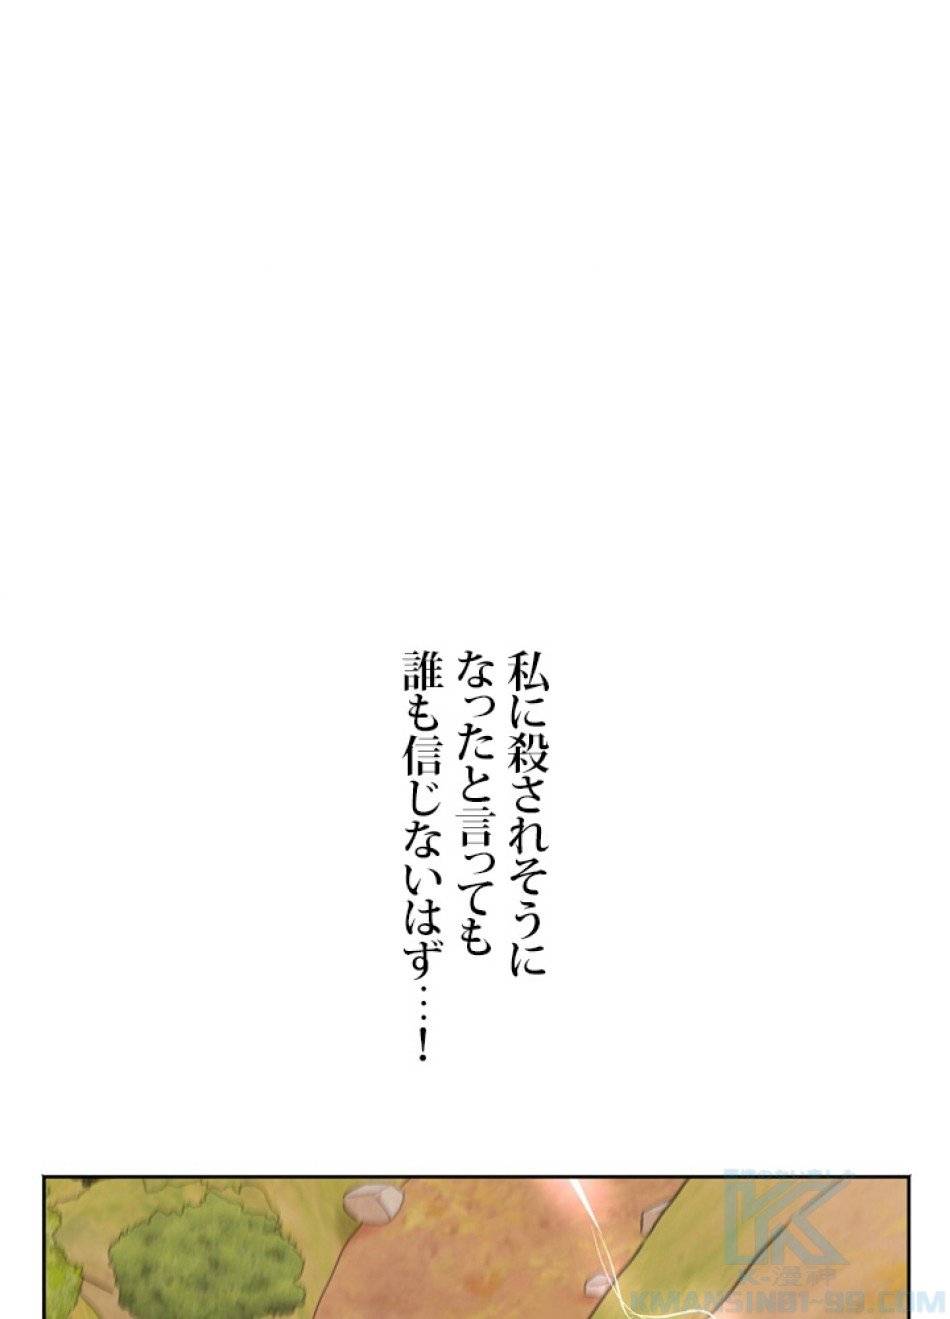 私に殺されそうに
なったと言っても
誰も信じないはず…！
K-漫神
KMANSIN01-99.COM